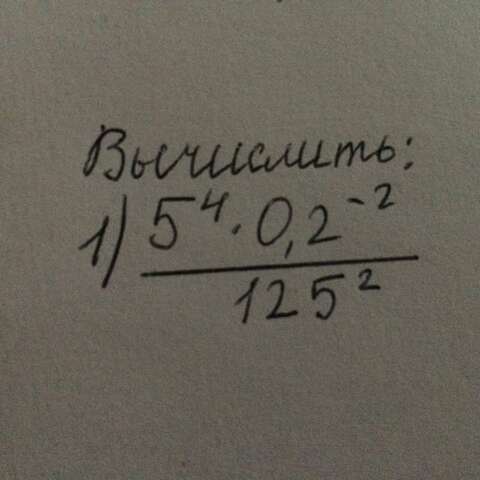 Вычислить:
1) 5⁴ · 0,2⁻²
125²